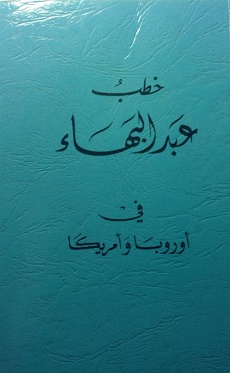 خطبُ
عبد البهاء
في
أوروبا وأمريكا